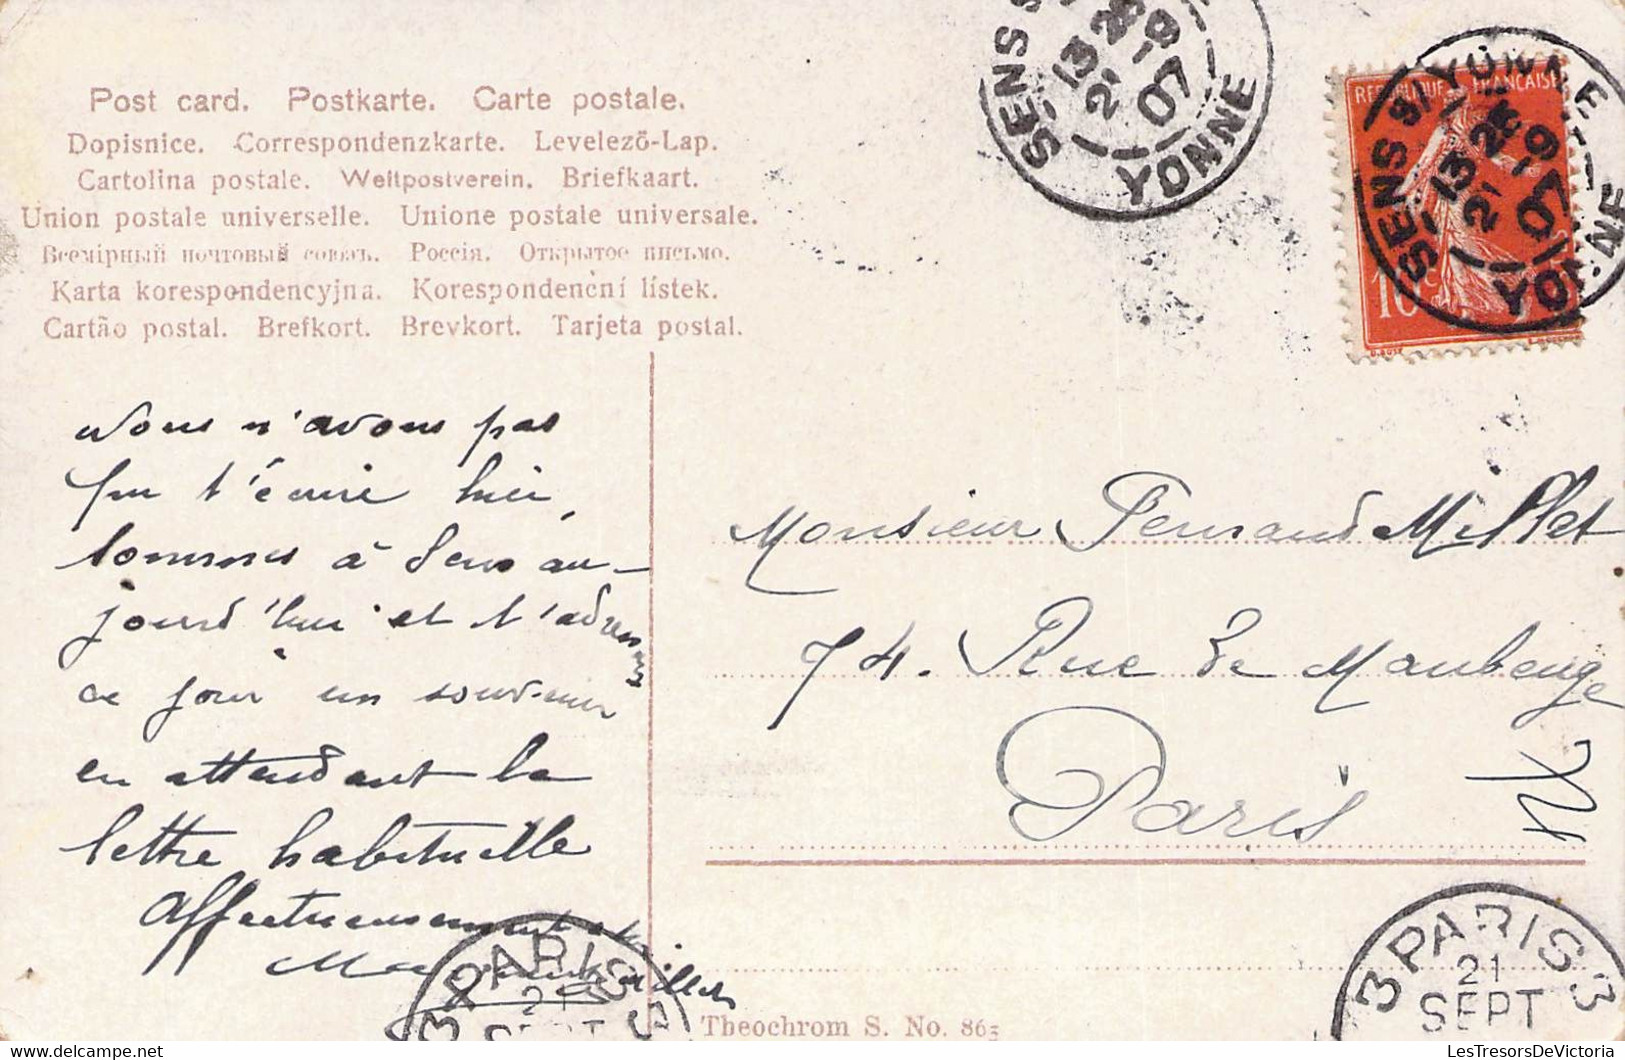 Post card. Postkarte. Carte postale.
Dopisnice. Correspondenzkarte. Levelezõ-Lap.
Cartolina postale. Weltpostverein. Briefkaart.
Union postale universelle. Unione postale universale.
Всемірный почтовый союзъ. Россія. Открытое письмо.
Karta korespondencyjna. Korespondenční lístek.
Cartão postal. Brefkort. Brevkort. Tarjeta postal.
SENS S/ YONNE
13 25
21 -9
07
YONNE
REPUBLIQUE FRANÇAISE
10c
SENS S/ YONNE
13 25
21 -9
07
YONNE
Nous n'avons pas
pu t'écrire hier,
sommes à Sens au-
jourd'hui et t'adressons
ce jour un souvenir
en attendant la
lettre habituelle
Affectueusement
Monsieur Fernand Millet
74. Rue de Maubeuge
Paris
3 PARIS 3
21
SEPT
3 PARIS 3
21
SEPT
Theochrom S. No. 865
www.delcampe.net
LesTresorsDeVictoria